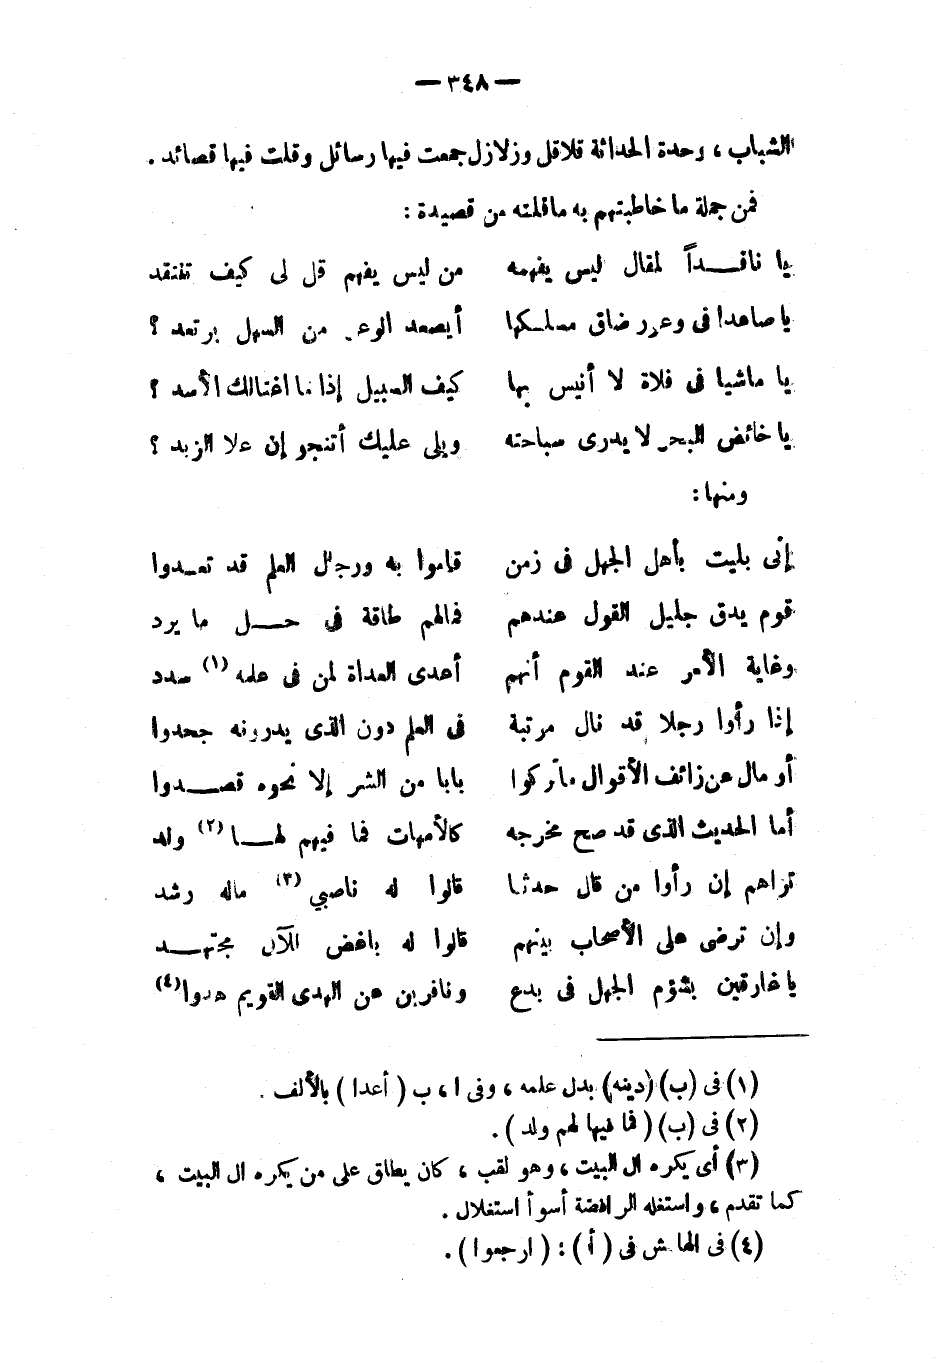 — ٣٤٨ —
الشباب ، وحدة الحداثة قلاقل وزلازل جمعت فيها رسائل وقلت فيها قصائد .
فمن جملة ما خاطبتهم به ماقلته من قصيدة :
يا ناقـــداً لمقال ليس يفهمه من ليس يفهم قل لى كيف تفتقد
يا صاعدا فى وعرر ضاق مسلكها أيصعد الوعر من السهل يرتعد ؟
يا ماشيا فى فلاة لا أنيس بها كيف السبيل إذا ما اغتالك الأسد ؟
يا خائض البحر لا يدرى سباحته ويلى عليك أتنجو إن علا الزبد ؟
ومنها :
إنى بليت بأهل الجهل فى زمن قاموا به ورجال العلم قد قعـدوا
قوم يدق جليل القول عندهم فمالهم طاقة فى حـــل ما يرد
وغاية الأمر عند القوم أنهم أعدى العداة لمن فى علمه (١) سدد
إذا رأوا رجلا قد نال مرتبة فى العلم دون الذى يدرونه جحدوا
أو مال عن زائف الأقوال ماتركوا بابا من الشر إلا نحوه قصـــدوا
أما الحديث الذى قد صح مخرجه كالأمهات فما فيهم لهـــا (٢) ولد
تراهم إن رأوا من قال حدثنا قالوا له ناصبي (٣) ماله رشد
وإن ترضى على الأصحاب بينهم قالوا له باغض للآل مجتهـــد
يا غارقين بشؤم الجهل فى بدع ونافرين عن الهدى القويم هدوا (٤)
(١) فى (ب) (دينه) بدل علمه ، وفى ا ، ب ( أعدا ) بالألف .
(٢) فى (ب) ( فما فيها لهم ولد ) .
(٣) أى يكره ال البيت ، وهو لقب ، كان يطلق على من يكره ال البيت ،
كما تقدم ، واستغله الرافضة أسوأ استغلال .
(٤) فى الهامش فى ( أ ) : ( ارجعوا ) .